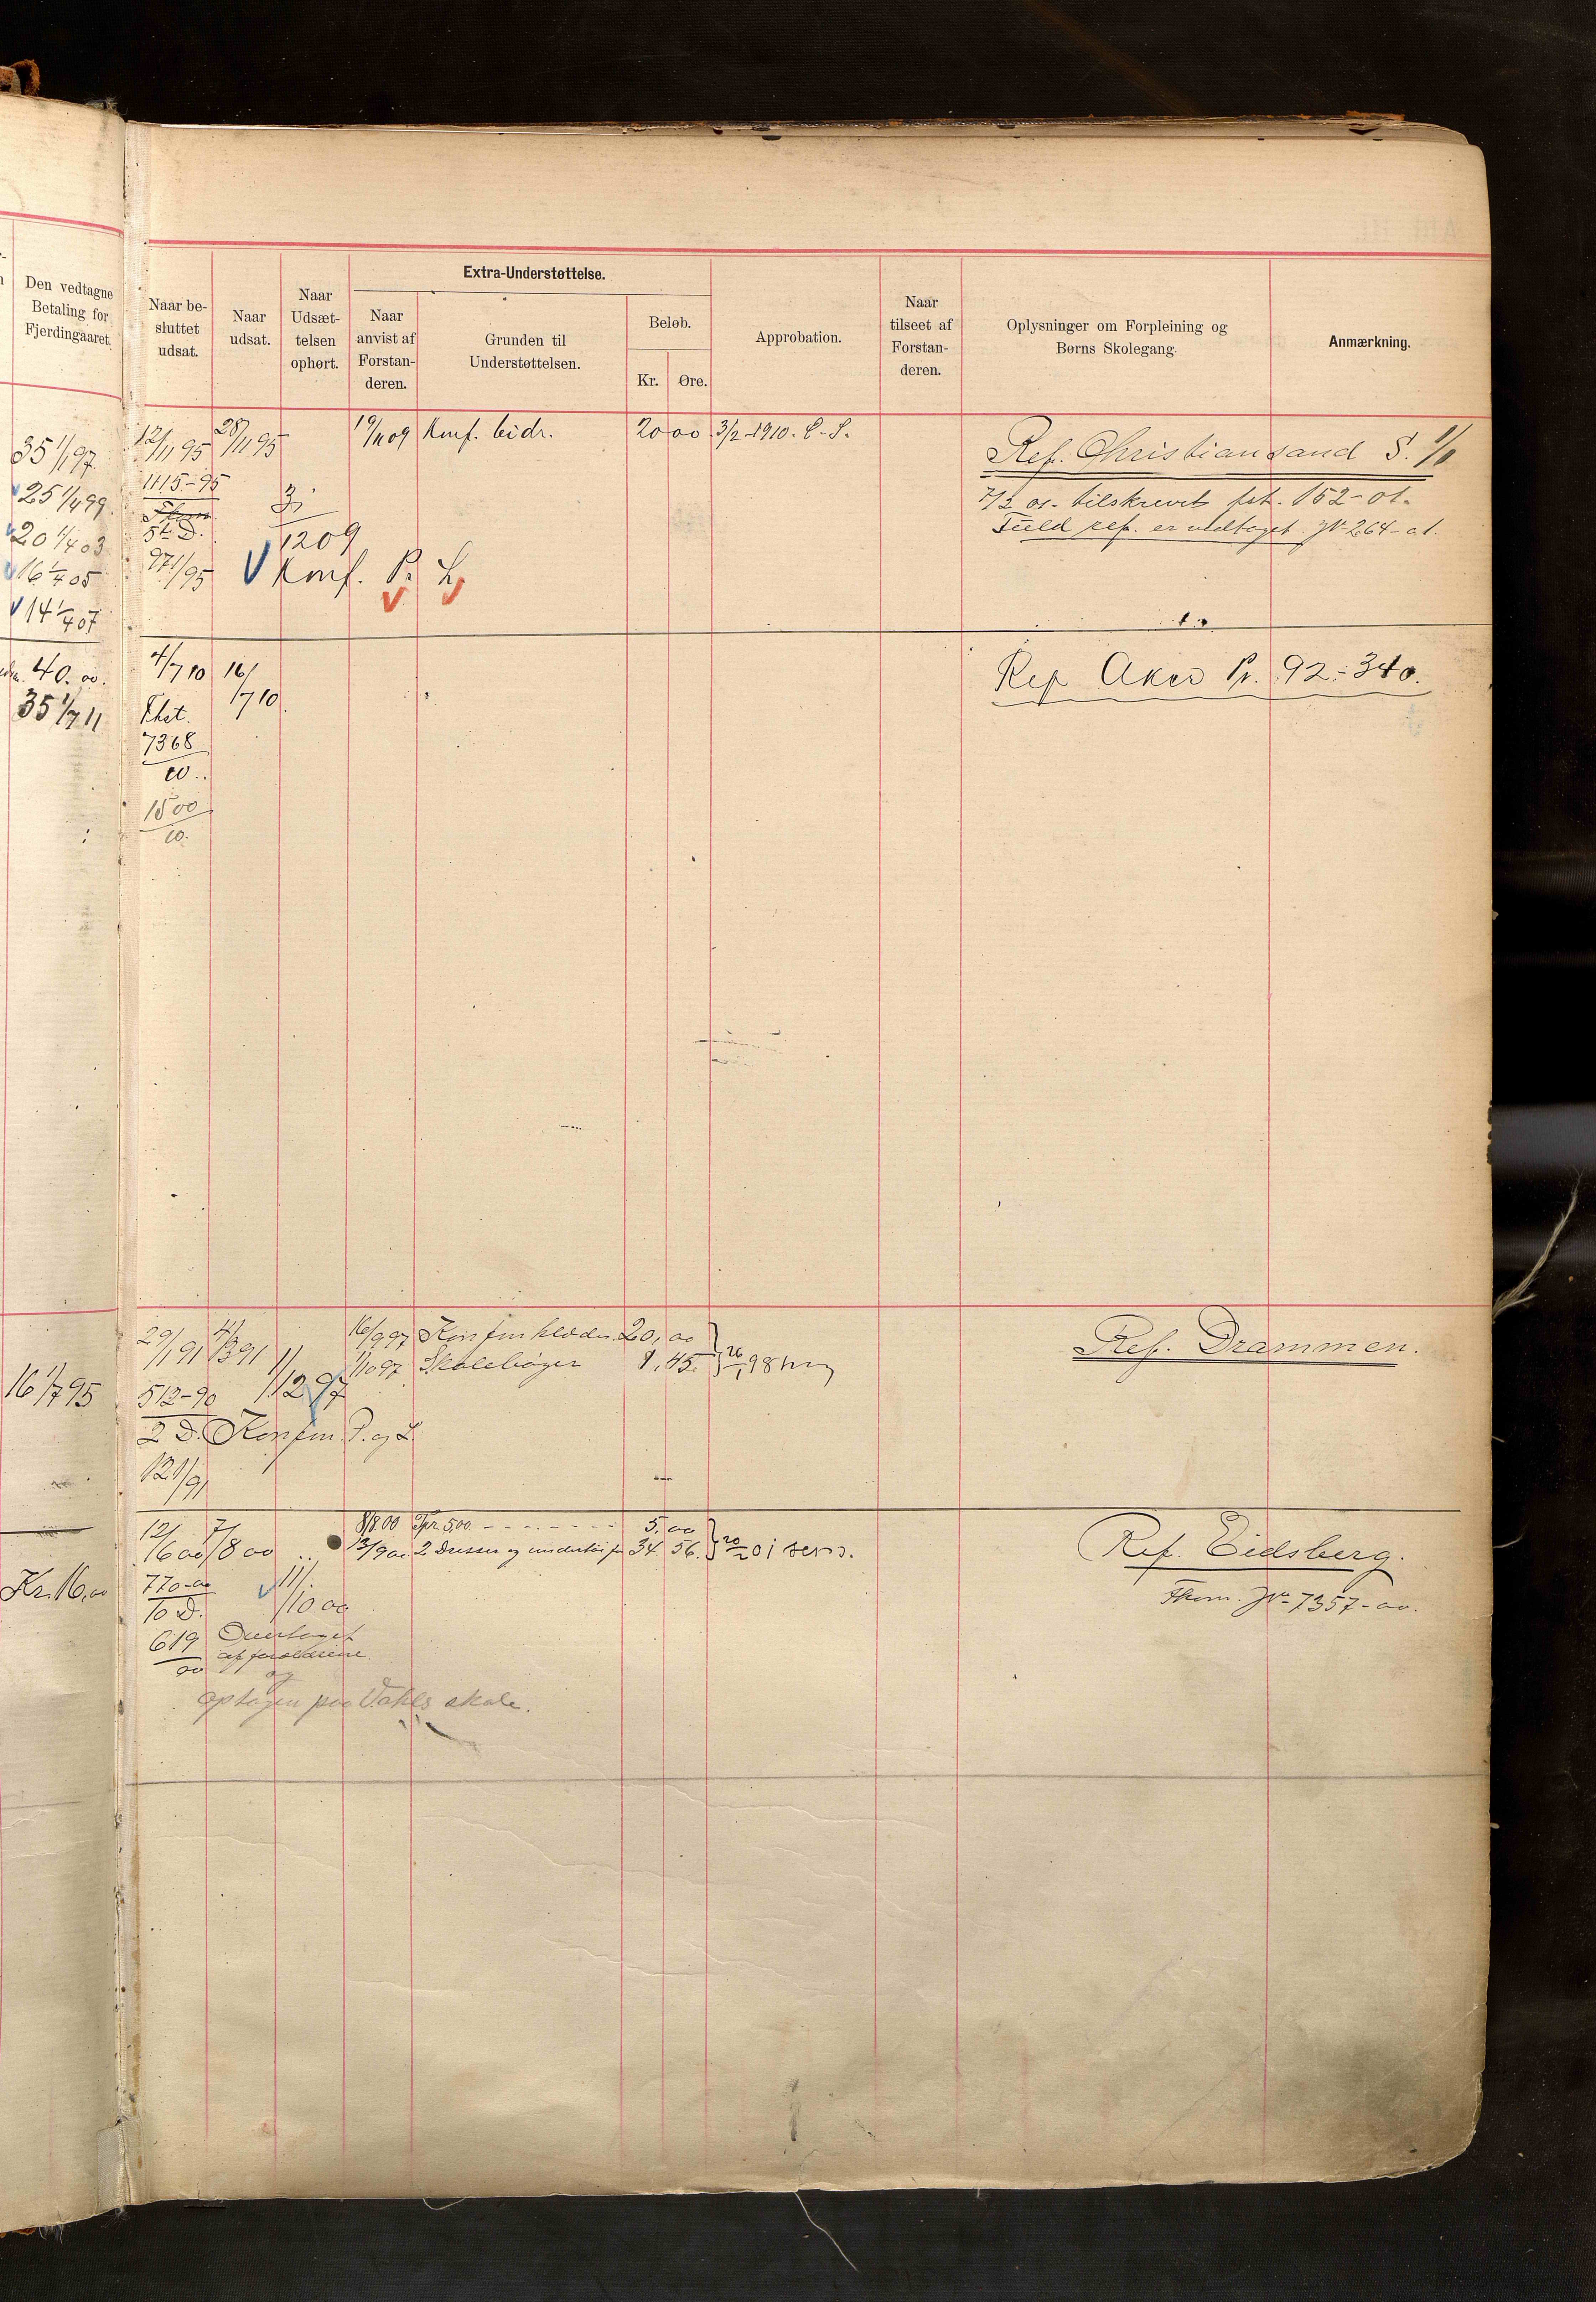 Den vedtagne
Betaling for
Fjerdingaaret.
Naar be-
sluttet
udsat.
Naar
udsat.
Naar
Udsæt-
telsen
ophørt.
Extra-Understøttelse.
Naar
anvist af
Forstan-
deren.
Grunden til
Understøttelsen.
Beløb.
Kr.
Øre.
Approbation.
Naar
tilseet af
Forstan-
deren.
Oplysninger om Forpleining og
Børns Skolegang.
Anmærkning.
35 1/1 97.
25 1/4 99
20 1/4 03
16 1/4 05
14 1/4 07
12/11 95 28/11 95 19/11 09 Konf. bidr. 20 00 3/2 1910.
1115-95
5t D.
971/95
3/12 09
Konf. P. L
Ref. Christiansand S. 1/1
7/2 01- tilskrevet fst. 152-01-
Fuld ref. er vedtaget. JN 264-01.
40. 00.
35 1/7 11
4/7 10 16/7 10
7368
10.
1500
10.
Ref Aker Pr. 92-340.
16 1/7 95
29/1 91 4/3 91 1/12 97
512-90
2 D. Konfm. P. og L
121/91
16/9 97 Konfmklæder 20,00
1/10 97 Skolebøger 1,45.
Ref. Drammen.
Kr. 16,00
12/6 00 7/8 00
770-00
10 D.
619
00
11/10 00
8/8 00 Tpr 5,00 5,00
13/9 00 2 Dresser og undertøi 34 56.
Overtaget
af forældrene
og
optagen paa Vahls skole.
Ref. Eidsberg.
JN 7357-00.